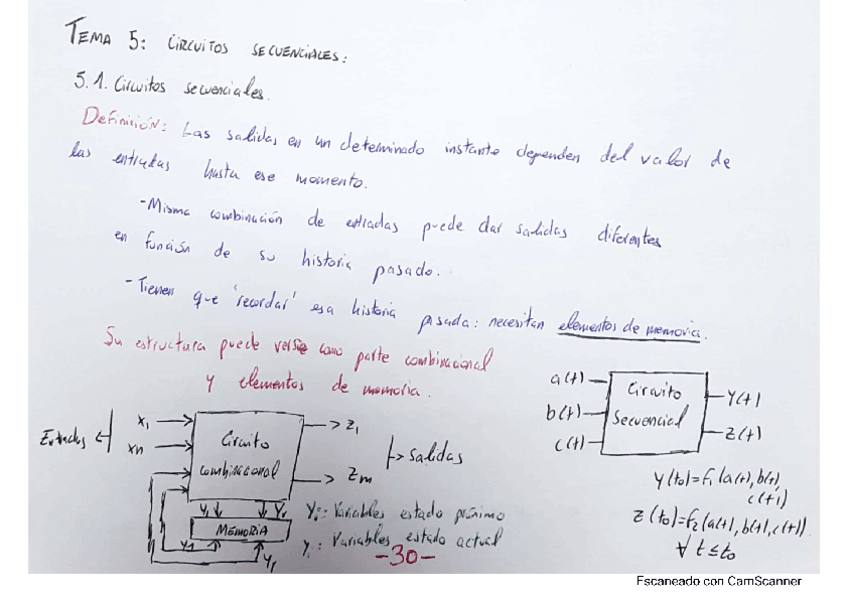 TEMA 5: CIRCUITOS SECUENCIALES:
5.1. Circuitos secuenciales.
Definición: Las salidas en un determinado instante dependen del valor de
las entradas hasta ese momento.
-Misma combinación de entradas puede dar salidas diferentes
en función de su historia pasado.
-Tienen que 'recordar' esa historia pasada: necesitan elementos de memoria.
Su estructura puede verse como parte combinacional
y elementos de memoria.
a(t)
b(t)
c(t)
Circuito
Secuencial
Y(t)
Z(t)
Entradas
x1
xn
Circuito
combinacional
z1
Zm
Salidas
Y1
Yr
MEMORIA
y1
yr
Yi: Variables estado próximo
yi: Variables estado actual
Y(to)=F1(a(t), b(t),
c(t))
Z(to)=F2(a(t), b(t), c(t))
∀ t≤to
-30-
Escaneado con CamScanner